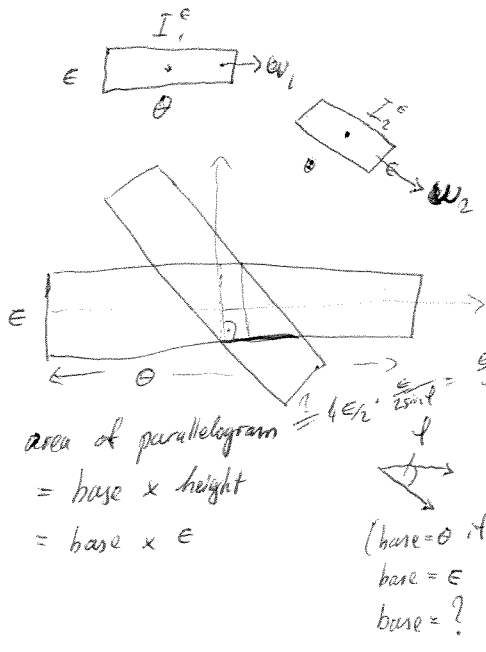 I₁^ε
ε
→ω₁
θ
I₂^ε
ε
θ
ω₂
ε
θ
area of parallelogram = 4ε/2 · ε/2sinφ =
= base × height
φ
= base × ε
(base = θ if
base = ε
base = ?